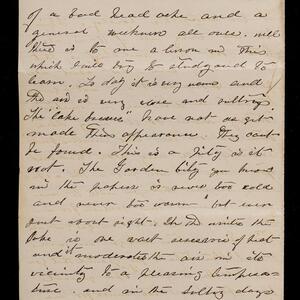 of a bad head ache and a
general weakness all over. well
there is to me a lesson in this
which I will try to study and to
learn. To day it is very warm and
the air is very close and sultry.
The "lake breezes" have not as yet
made their appearance. They cant
be found. This is a pity is it
not. The Garden City you know
in the papers is never too cold
and never too warm "but
out most right. In the winter the
lake is one vast reservoir of heat
and it moderates the air in its
vicinity to a pleasing tempera-
ture. and in the sultry days